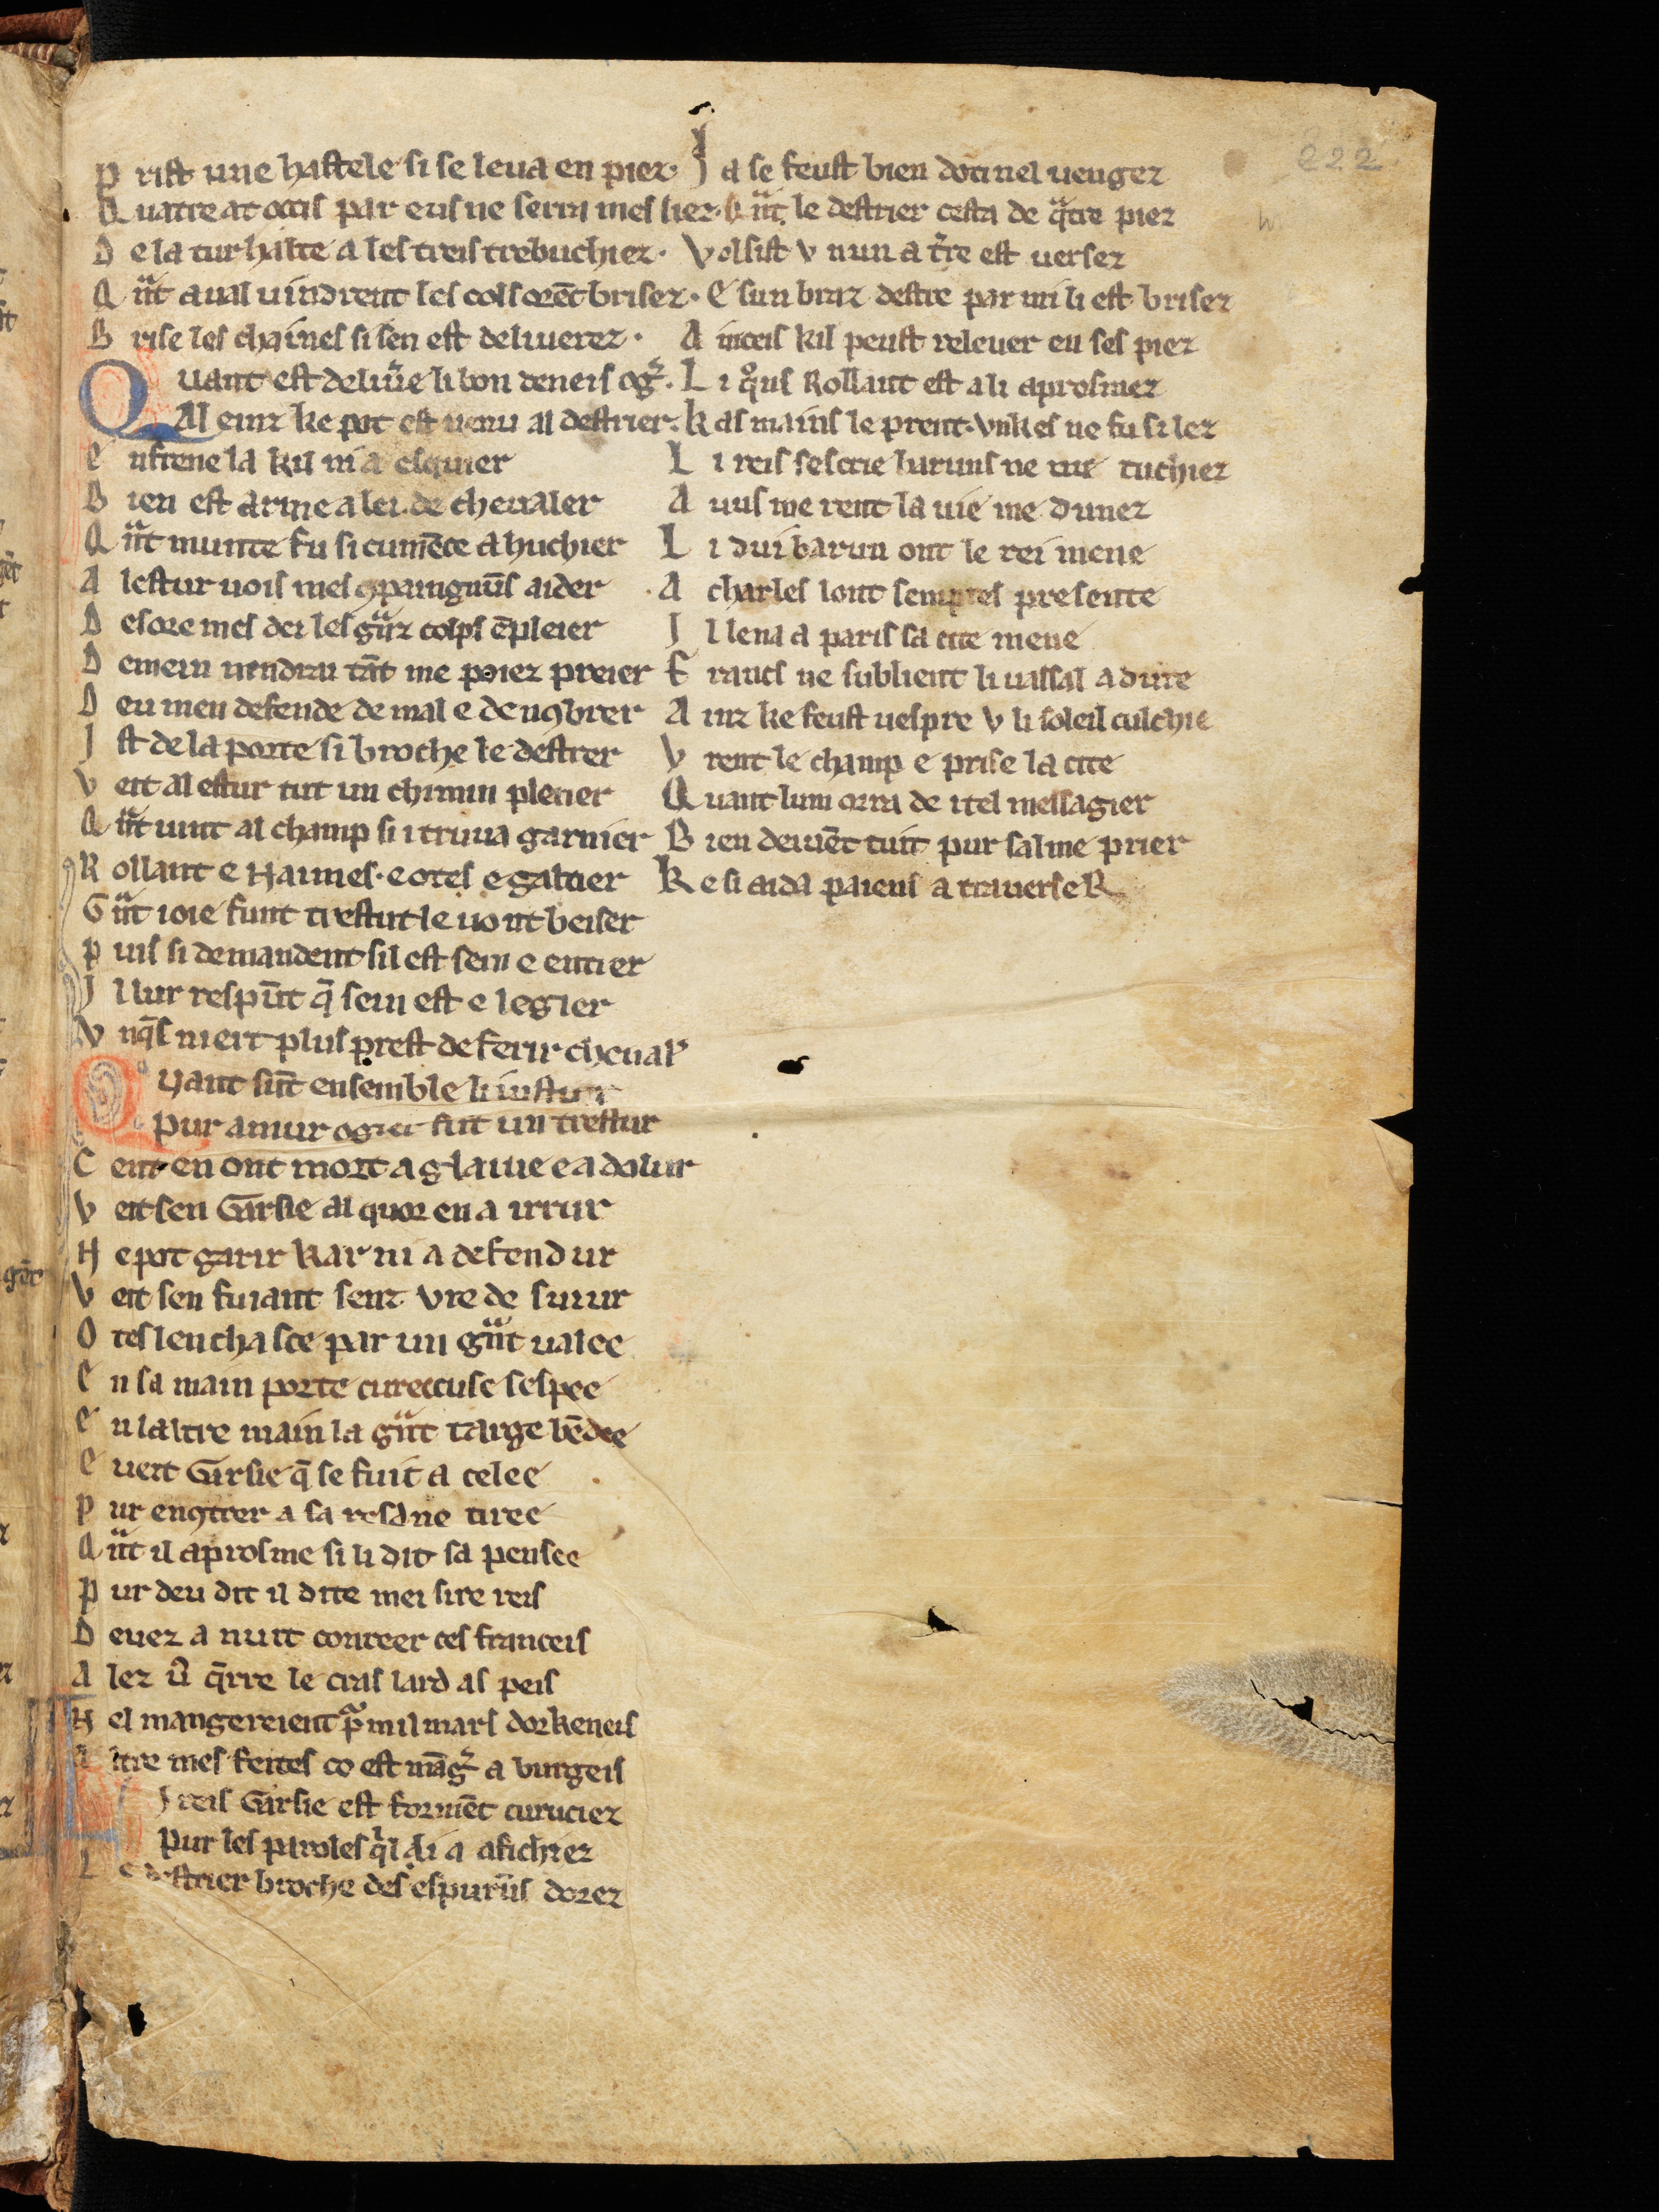 222
P rist une hastele si se leua en piez·
Q uatre at occis par eus ne serra mes liez·
D e la tur halte a les treis trebuchiez·
Q ͣnt aual uindrent les cols orēt brisez·
B rise les chaines si sen est deliuerez·
Q uant est deliu͛e li bon deneis og͛·
Al einz ke pot est uenu al destrier·
E nfrene la kil ni a esquier
B ien est arme a lei de cheualer
Q ͣnt munte fu si cumēce a huchier
A lestur uois mes ꝯpaingnūs aider
D esore mes dei les gͣnz colps ēpleier
D emein uendra tāt me poez preier
D eu men defende de mal e denꝯbrer
I st de la porte si broche le destrer
V eit al estur tut un chimin plenier
Q ͣnt uint al champ si i truua garnier
R ollant e Haimes· e otes e galtier
G ͣnt ioie funt trestut le uont beiser
P uis si demandent sil est sein e entier
I l lur respūt q̄ sein est e legier
V nq̄s niert plus prest de ferir cheual͛
Quant sūt ensemble li iustur
Pur amur ogier fut un trestur
C ent en ont mort a glaiue e a dolur
V eit sen Garsie al quor en a irrur
N e pot garir kar ni a defendur
V eit sen fuiant senz vre de suiur
O tes lenchasce par un gͣnt ualee
E n sa main porte cureccuse sespee
E n laltre main la gͣnt targe bēdee
E ueit Garsie q̄ se fuit a celee
P ur enꝯtrer a sa resdne tiree
Q ͣnt il aprosme si li dit sa pensee
P ur deu dit il dite mei sire reis
D euez a nuit conreer ces franceis
A lez u͛ q̄rre le cras lard as peis
N el mangereient pͣ mil mars dorkeneis
A ltre mes feites co est māg͛ a burgeis
Li reis Garsie est formēt curuciez
Pur les paroles qͥl li a afichiez
L e destrier broche des espurūs dorez
I a se feust bien dotinel uengez
Q ͣnt le destrier cesta de qͣtre piez
Volsist v nun a t͛re est uersez
E sun braz destre par mi li est brisez
A inceis kil peust releuer en ses piez
L i qͦns Rollant est a li aprosmez
K as mains le prent· vnkes ne fu si lez
L i reis sescrie baruns ne me tuchiez
A uus me rent la uie me dunez
L i dui barun ont le rei mene
A charles lont sempres presente
I l lena a paris sa cite mene
F rancs ne sublient li uassal adure
A inz ke feust uespre v li soleil culchie
V rent le champ e prise la cite
Q uant lum orra de itel messagier
B ien deiuēt tuit pur salme prier
K e si aida paiens a trauerseR